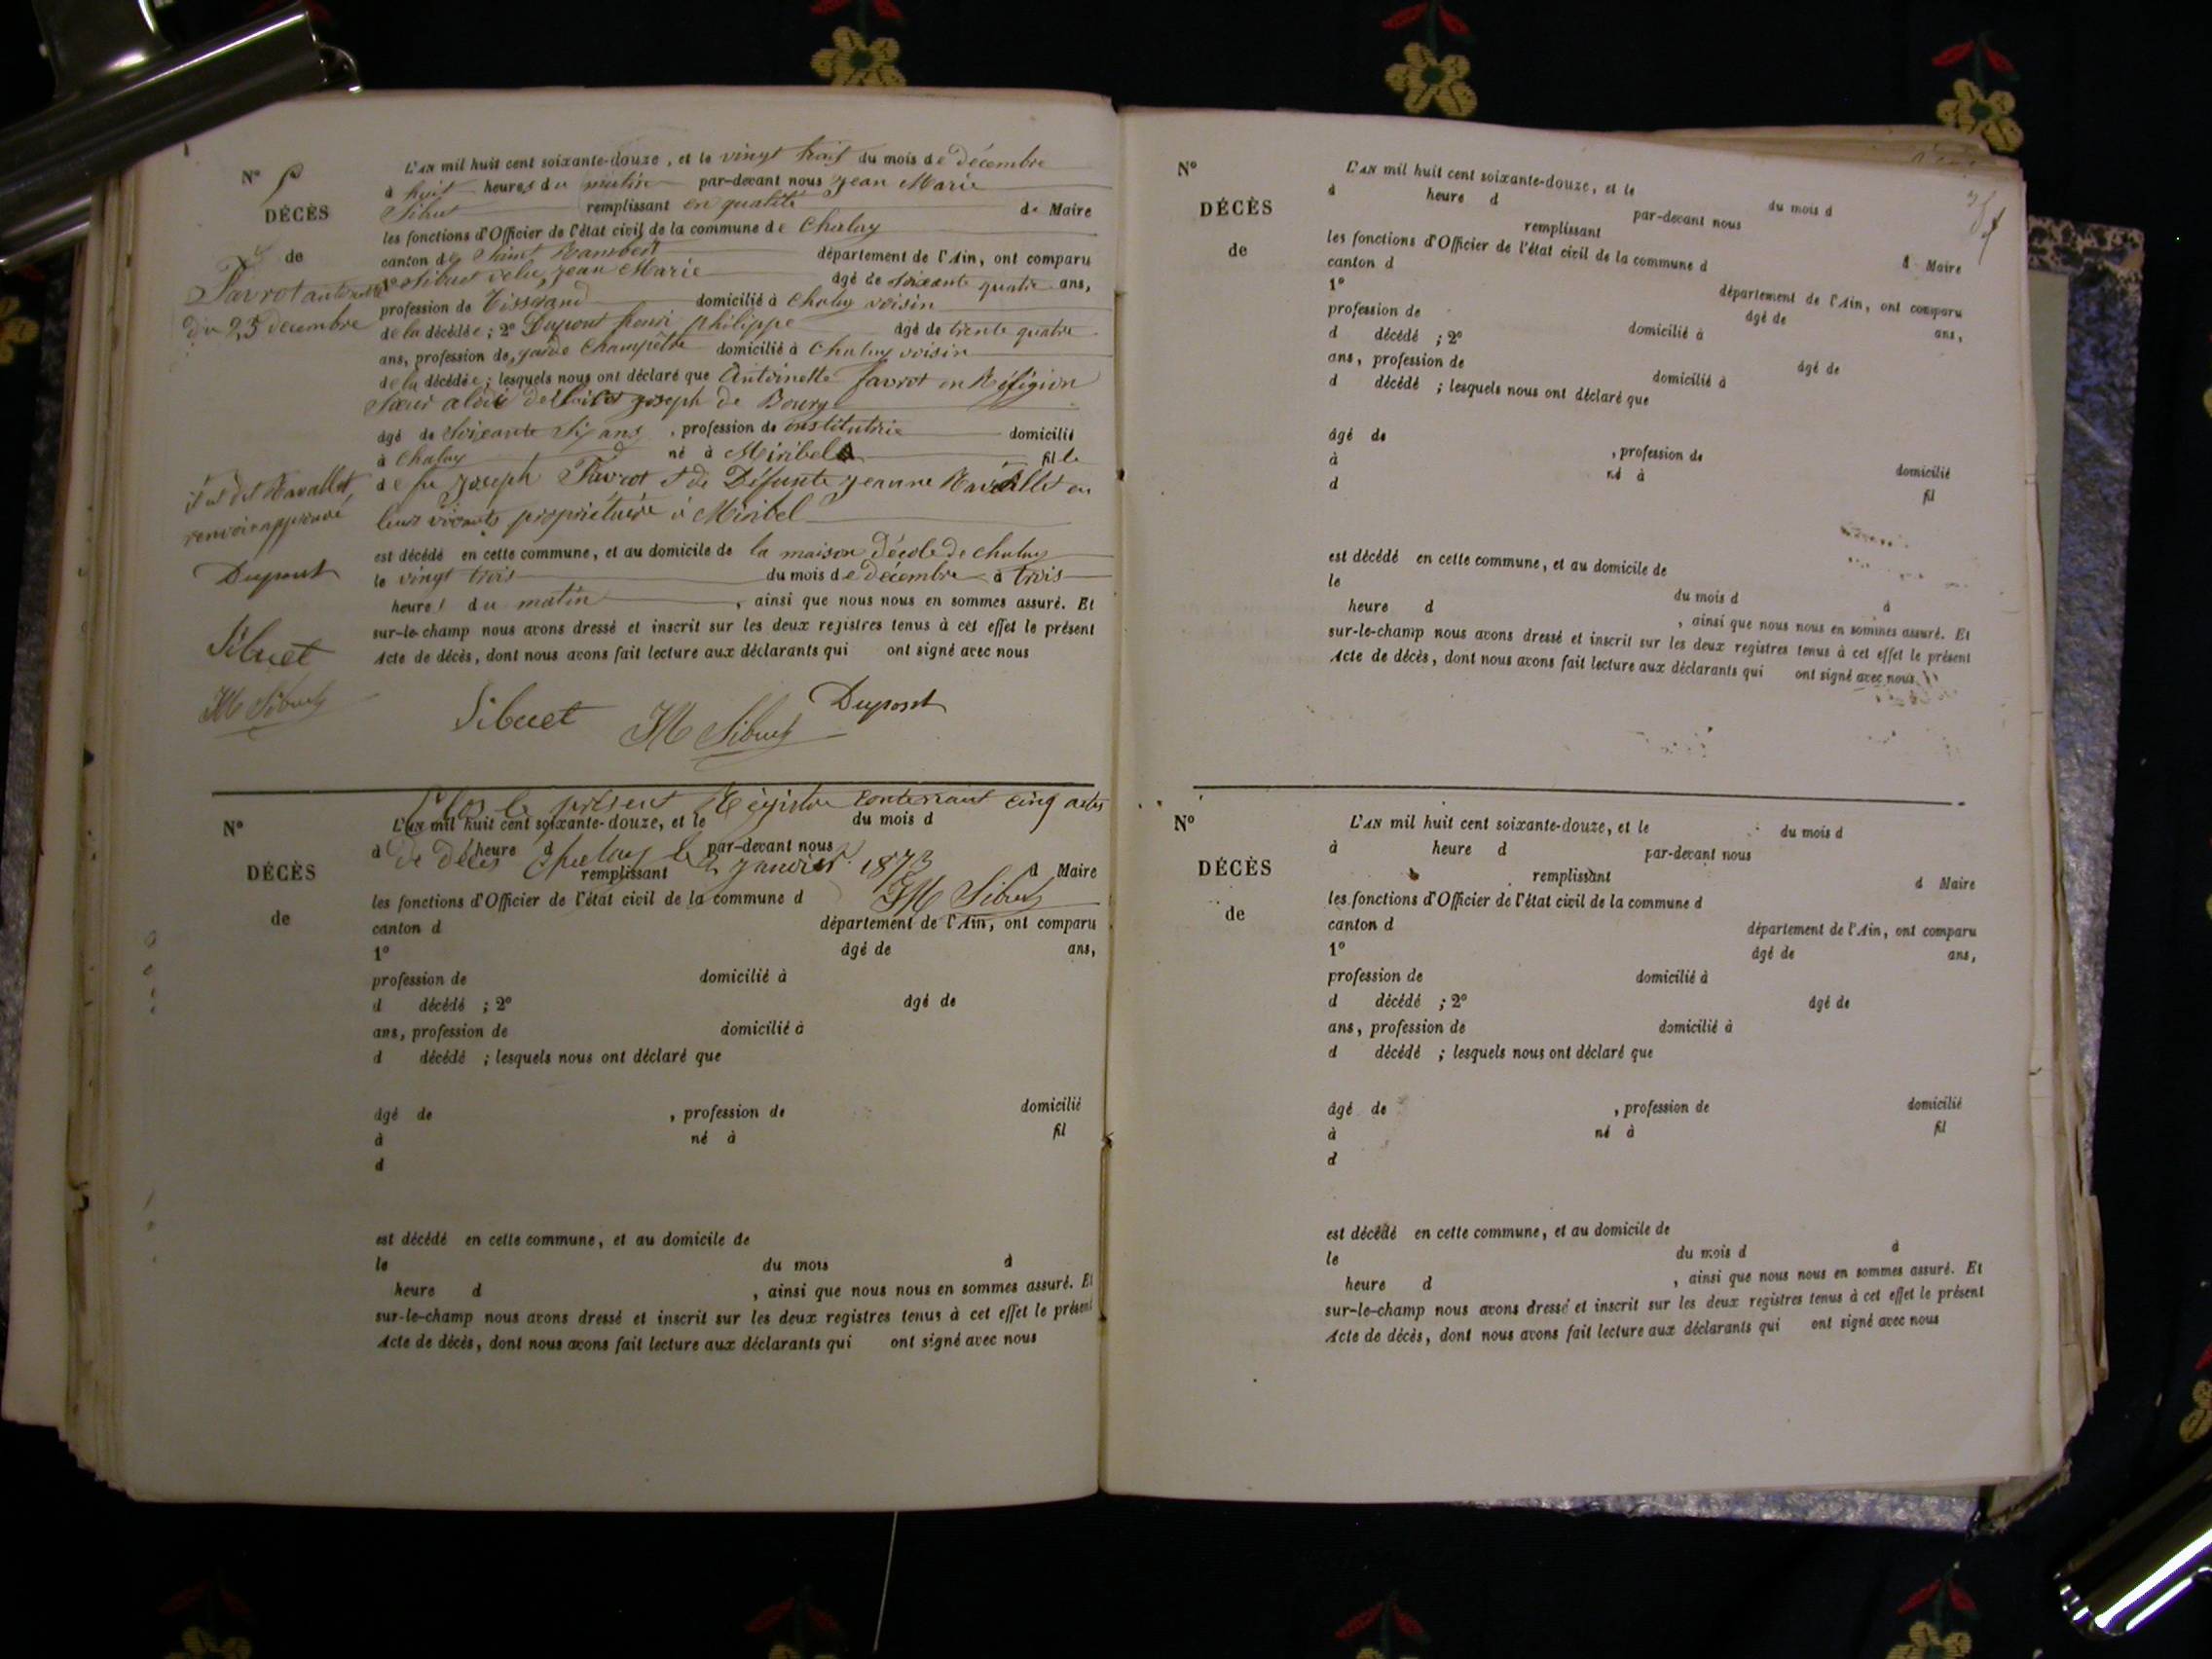 N° 5
DÉCÈS
de
Favrot antoinette
du 23 décembre
L'AN mil huit cent soixante-douze, et le vingt trois du mois de décembre
à huit heures du matin par-devant nous jean Marie
Sibuet remplissant en qualité de Maire
les fonctions d'Officier de l'état civil de la commune de Chaley
canton de Saint Rambert département de l'Ain, ont comparu
1° Sibuet jean Marie âgé de soixante quatre ans,
profession de Tisserand domicilié à Chaley voisin
de la décédée ; 2° Dupont henri philippe âgé de trente quatre
ans, profession de garde Champêtre domicilié à Chaley voisin
de la décédée ; lesquels nous ont déclaré que Antoinette favrot en Réligion
Sœur de Saint joseph de Bourg
âgé de Soixante Six ans , profession de institutrice domicilié
à Chaley né à Miribel fille
de feu joseph Favrot et de Défunte jeanne Ravallet en
leur vivants propriétaire à Miribel
est décédé en cette commune, et au domicile de la maison d'école de chaley
le vingt trois du mois de décembre à trois
heures du matin , ainsi que nous nous en sommes assuré. Et
sur-le-champ nous avons dressé et inscrit sur les deux registres tenus à cet effet le présent
Acte de décès, dont nous avons fait lecture aux déclarants qui ont signé avec nous
Ravallet
renvoi approuvé
Dupont
Sibuet
JM Sibuet
Sibuet JM Sibuet Dupont
Clos le présent Régistre contenant cinq actes
de décès Chaley le 2 janvier 1873
JM Sibuet
N°
DÉCÈS
de
L'AN mil huit cent soixante-douze, et le du mois d
à heure d par-devant nous
remplissant d Maire
les fonctions d'Officier de l'état civil de la commune d
canton d département de l'Ain, ont comparu
1° âgé de ans,
profession de domicilié à
d décédé ; 2° âgé de
ans, profession de domicilié à
d décédé ; lesquels nous ont déclaré que
âgé de , profession de domicilié
à né à fil
d
est décédé en cette commune, et au domicile de
le du mois à
heure d , ainsi que nous nous en sommes assuré. Et
sur-le-champ nous avons dressé et inscrit sur les deux registres tenus à cet effet le présent
Acte de décès, dont nous avons fait lecture aux déclarants qui ont signé avec nous
N°
DÉCÈS
de
L'AN mil huit cent soixante-douze, et le du mois d
à heure d par-devant nous
remplissant d Maire
les fonctions d'Officier de l'état civil de la commune d
canton d département de l'Ain, ont comparu
1° âgé de ans,
profession de domicilié à
d décédé ; 2° âgé de
ans, profession de domicilié à
d décédé ; lesquels nous ont déclaré que
âgé de , profession de domicilié
à né à fil
d
est décédé en cette commune, et au domicile de
le du mois d à
heure d , ainsi que nous nous en sommes assuré. Et
sur-le-champ nous avons dressé et inscrit sur les deux registres tenus à cet effet le présent
Acte de décès, dont nous avons fait lecture aux déclarants qui ont signé avec nous
N°
DÉCÈS
de
L'AN mil huit cent soixante-douze, et le du mois d
à heure d par-devant nous
remplissant d Maire
les fonctions d'Officier de l'état civil de la commune d
canton d département de l'Ain, ont comparu
1° âgé de ans,
profession de domicilié à
d décédé ; 2° âgé de
ans, profession de domicilié à
d décédé ; lesquels nous ont déclaré que
âgé de , profession de domicilié
à né à fil
d
est décédé en cette commune, et au domicile de
le du mois d à
heure d , ainsi que nous nous en sommes assuré. Et
sur-le-champ nous avons dressé et inscrit sur les deux registres tenus à cet effet le présent
Acte de décès, dont nous avons fait lecture aux déclarants qui ont signé avec nous